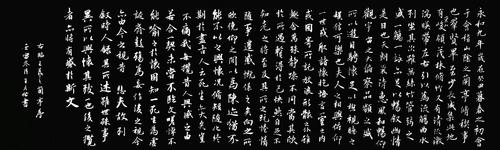 永和九年歲在癸丑暮春之初會
于會稽山陰之蘭亭脩禊事
也羣賢畢至少長咸集此地
有崇領茂林脩竹又有清流激
湍暎帶左右引以為流觴曲水
列坐其次雖無絲竹管弦之
盛一觴一詠亦足以暢敘幽情
是日也天朗氣清惠風和暢仰
觀宇宙之大俯察品類之盛
所以遊目騁懷足以極視聽之
娛信可樂也夫人之相與俯仰
一世或取諸懷抱悟言一室之內
或因寄所託放浪形骸之外雖
趣舍萬殊靜躁不同當其欣
於所遇暫得於己快然自足不
知老之將至及其所之既惓情
隨事遷感慨係之矣向之所
欣俛仰之間以為陳迹猶不
能不以之興懷況脩短隨化終
期於盡古人云死生亦大矣豈
不痛哉每攬昔人興感之由
若合一契未嘗不臨文嗟悼不
能喻之於懷固知一死生為虛
誕齊彭殤為妄作後之視今
亦由今之視昔悲夫故列
敘時人錄其所述雖世殊事
異所以興懷其致一也後之攬
者亦將有感於斯文
右臨王羲之蘭亭序